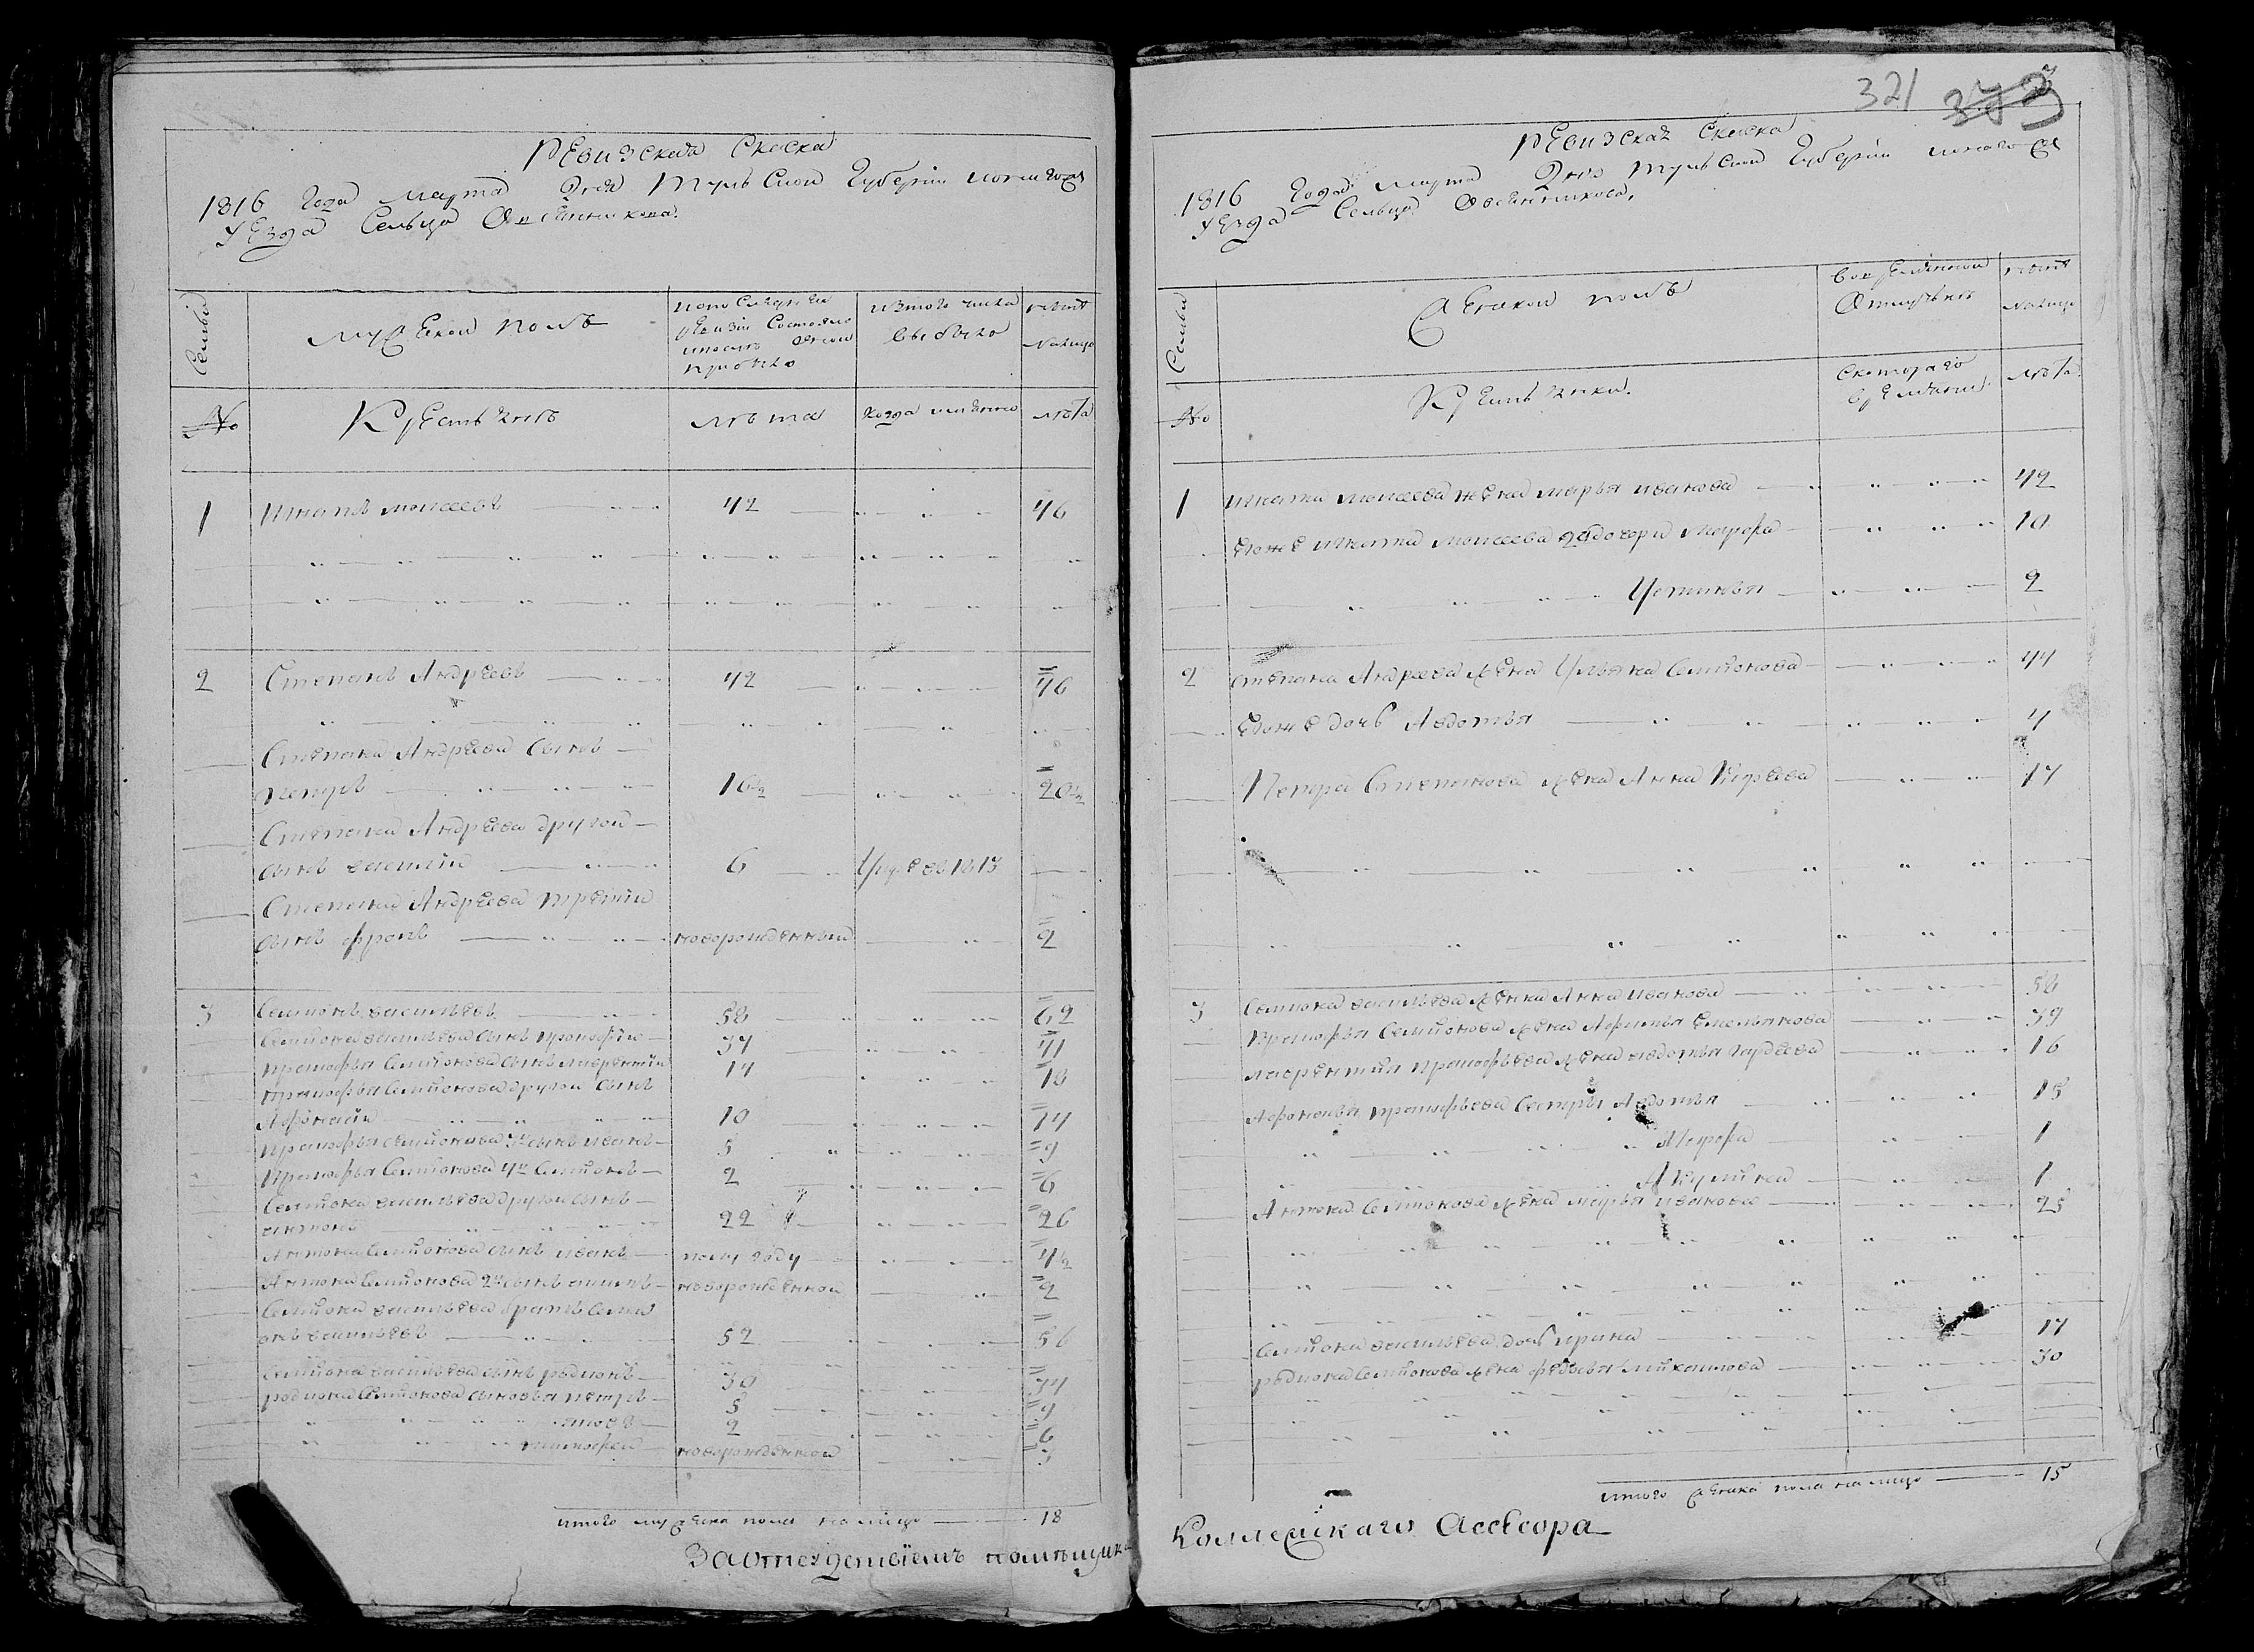 Ревизская Скаска
1816 Года Марта Дня Тульской Губернии
Уезда Сельца Овсянникова.
Семьи
Мужеской полъ
по последней
ревизии Состояло
и после оной
прибыло
изъ того числа
выбыло
ныне
налицо
№
Крестьянъ
лета
когда именно
лета
1 Игнатъ Моисеевъ 42 46
2 Степанъ Андреевъ 42 46
Степана Андреева Сынъ
Петръ 16½ 20½
Степана Андреева другой
сынъ василий 6 1813
Степана Андреева третий
сынъ фролъ новорожденный 2
3 Семионъ васильевъ 58 62
Семиона васильева сынъ прокофий 37 41
прокофья Семионова сынъ лаврентий 14 18
прокофья Семионова другой Сынъ
Афонасий 10 14
прокофья семионова 3й сынъ иванъ 5 9
прокофья Семионова 4й Семионъ 2 6
Семиона васильева другой сынъ
антонъ 22 26
Антона Семионова сынъ иванъ полу году 4½
Антона Семионова 2й сынъ новорожденной 2
Семиона васильева братъ Семи
онъ васильевъ 52 56
Семиона васильева сынъ родионъ 30 34
родиона Семионова сыновья петръ 5 9
2 6
тимофей новорожденной 3
итого мужеска пола налицо 18
За отсудствиемъ помещика
321 373
Ревизская Скаска
1816 Года Марта Дня Тульской Губернии
Уезда Сельца Овсянникова.
Семьи
Женской полъ
Во временной
Отлучке
ныне
налицо
№
Крестьянки.
Скоторого
времени
лета
1 Игната Моисеева жена Марья иванова 42
Егоже Игната Моисеева 2 дочери Мавра 10
Устинья 2
2 Степана Андреева жена Ульяна Семионова 44
Егоже дочь Авдотья 4
Петра Степанова жена Анна 17
3 Семиона васильева женка Анна иванова 58
прокофья Семионова жена Афимья Емельянова 39
лаврентия прокофьева жена авдотья гордеева 16
Афонасья прокофьева Сестры Авдотья 15
1
Акулина 1
Антона Семионова жена марья иванова 25
Семиона васильева дочь ирина 17
родиона Семионова жена федосья михаилова 30
итого женска пола налицо 15
Коллежскаго Ассесора